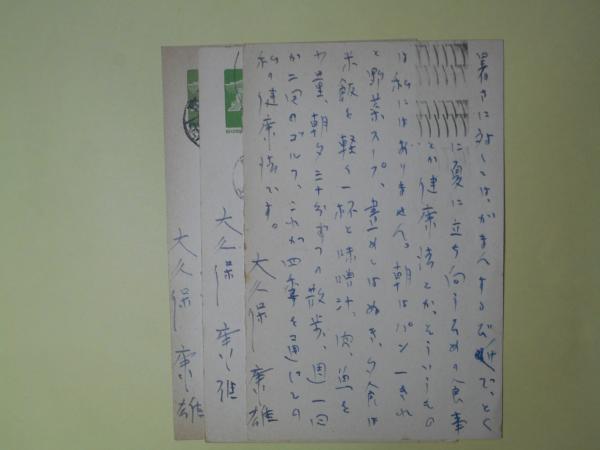 暑さに対しては、がまんするだけで、とく
に夏に立ち向うための食事
とか健康法とか、そういうもの
は私にはありません。朝はパン一きれ
と野菜スープ、昼めしはぬき、夕食は
米飯を軽く一杯と味噌汁、肉、魚を
少量、朝夕三十分ずつの散歩、週一回
か二回のゴルフ、これが四季を通じての
私の健康法です。
大久保康雄
大久保康雄
大久保康雄